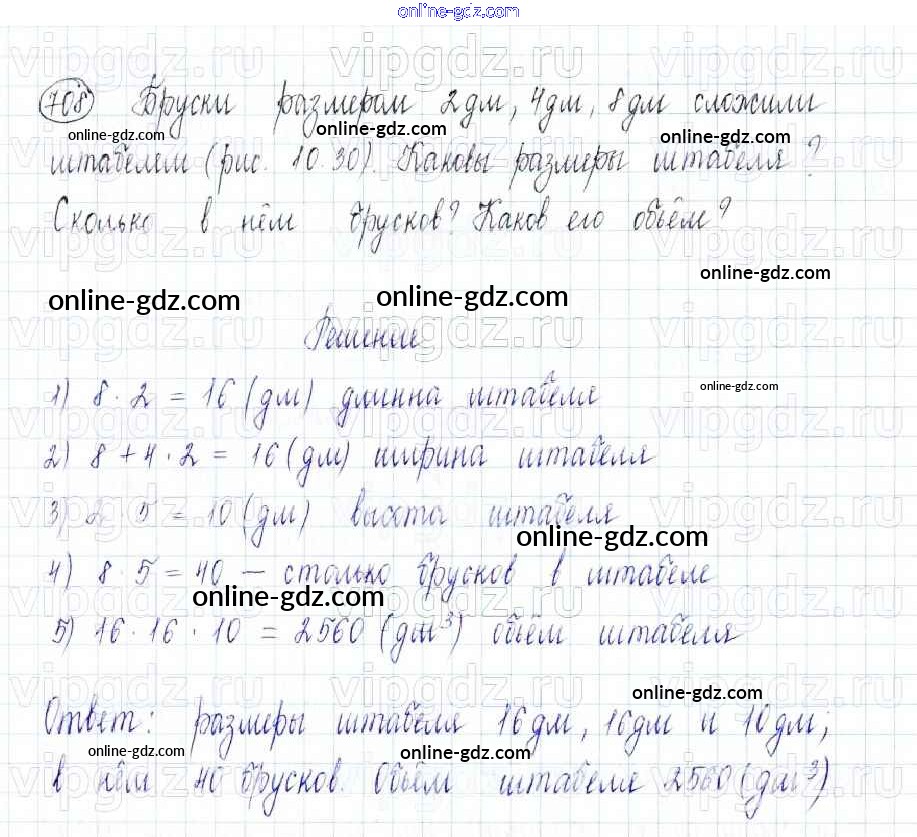 online-gdz.com
708 Бруски размером 2дм, 4дм, 8дм сложили
online-gdz.com online-gdz.com
штабелем (рис. 10.30). Каковы размеры штабеля?
Сколько в нём брусков? Каков его обьём?
online-gdz.com
online-gdz.com online-gdz.com
Решение
1) 8 · 2 = 16 (дм) длинна штабеля
online-gdz.com
2) 8 + 4 · 2 = 16 (дм) ширина штабеля
3) 2 · 5 = 10 (дм) высота штабеля
online-gdz.com
4) 8 · 5 = 40 — столько брусков в штабеле
online-gdz.com
5) 16 · 16 · 10 = 2560 (дм³) обьём штабеля
online-gdz.com
Ответ: размеры штабеля 16дм, 16дм и 10дм;
online-gdz.com online-gdz.com
в нём 40 брусков. Обьём штабеля 2560 (дм³)
vipgdz.ru